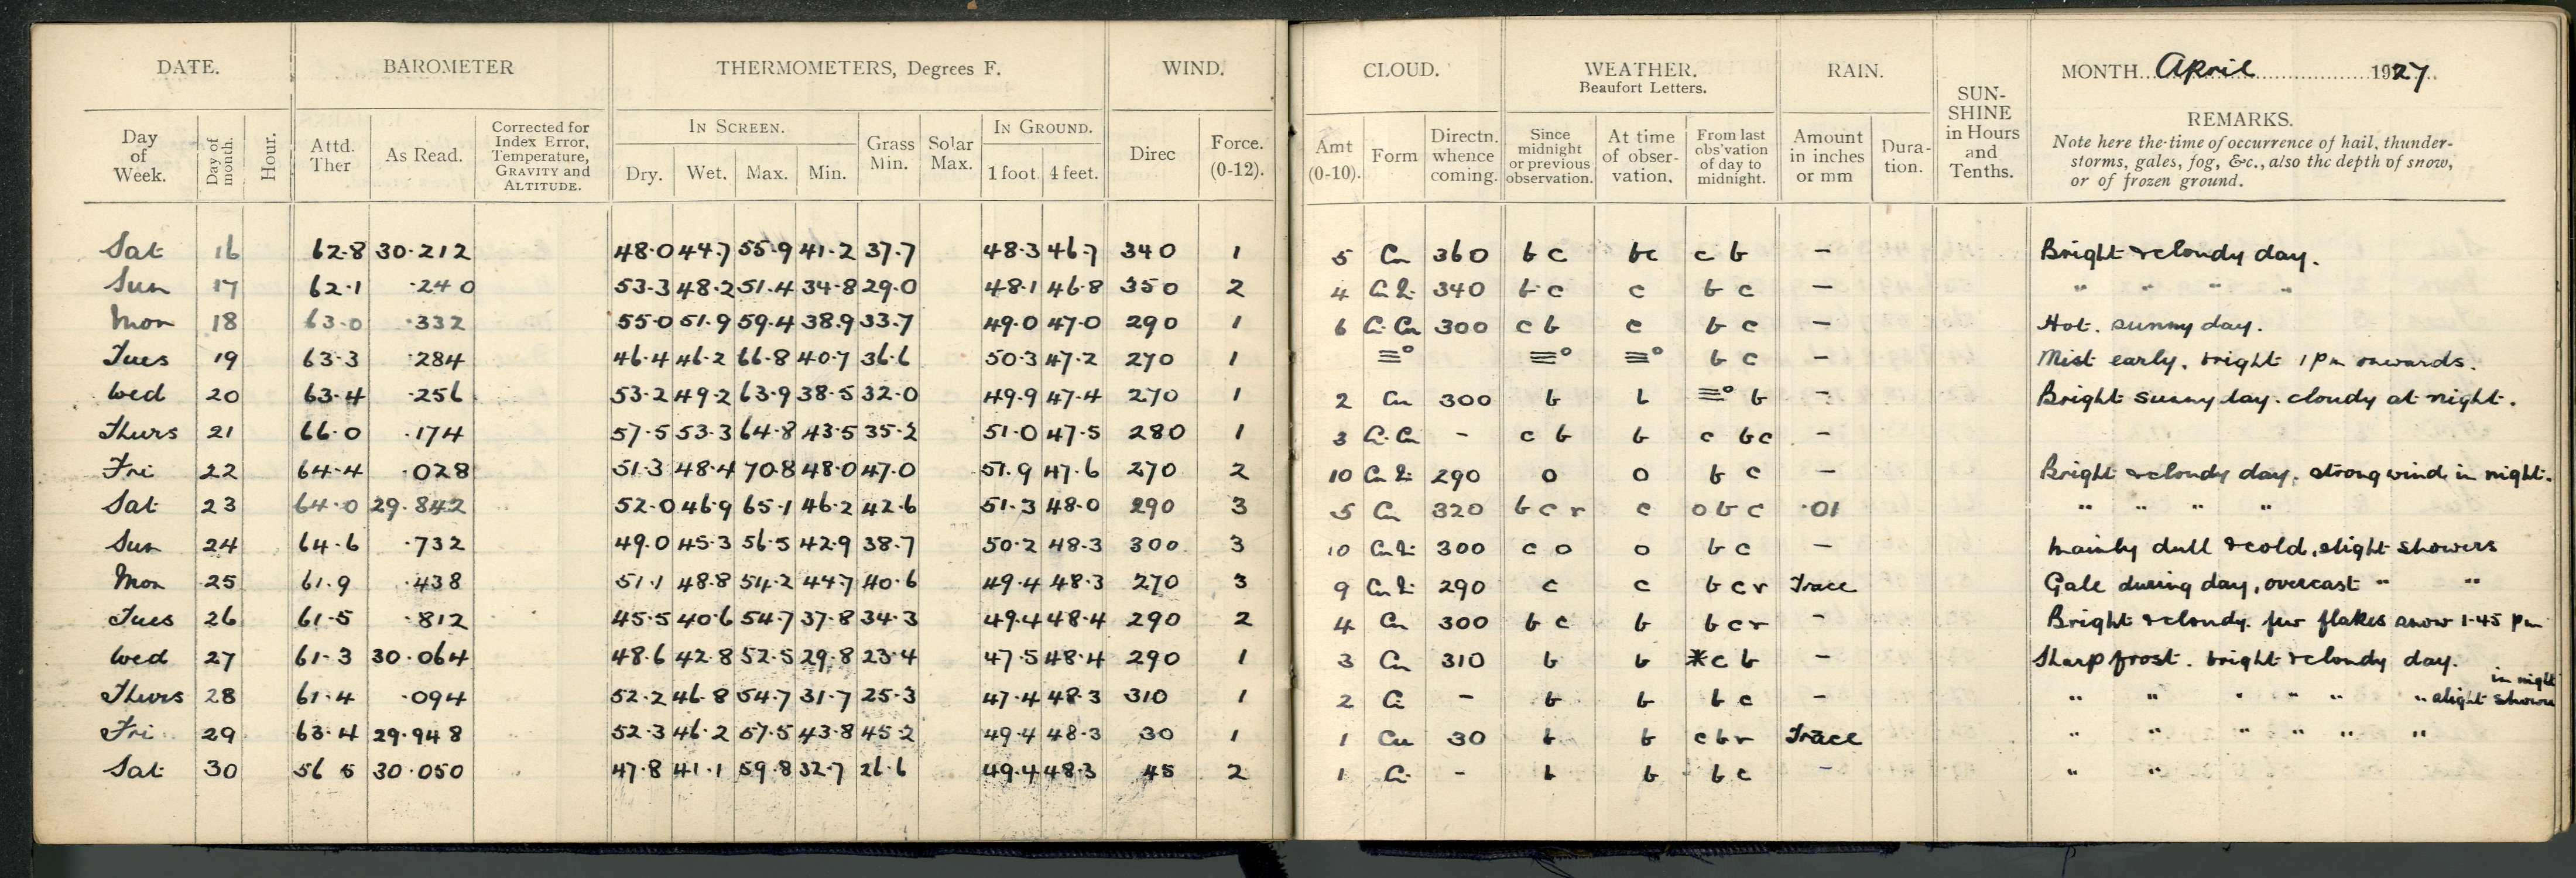 DATE. BAROMETER THERMOMETERS, Degrees F. WIND. CLOUD. WEATHER. Beaufort Letters. RAIN. SUN-SHINE in Hours and Tenths. MONTH April 1927
Day of Week. Day of month. Hour. Attd. Ther As Read. Corrected for Index Error, Temperature, GRAVITY and ALTITUDE. IN SCREEN. Dry. Wet. Max. Min. Grass Min. Solar Max. IN GROUND. 1 foot 4 feet. Direc Force. (0-12). Amt (0-10). Form Directn. whence coming. Since midnight or previous observation. At time of obser-vation. From last obs'vation of day to midnight. Amount in inches or mm Dura-tion. REMARKS.
Note here the time of occurrence of hail, thunder-
storms, gales, fog, &c., also the depth of snow,
or of frozen ground.
Sat 16 62.8 30.212 48.0 44.7 55.9 41.2 37.7 48.3 46.7 340 1 5 Cu 360 b c bc c b - Bright & cloudy day.
Sun 17 62.1 .240 53.3 48.2 51.4 34.8 29.0 48.1 46.8 350 2 4 340 b c c b c - " " " "
Mon 18 63.0 .332 55.0 51.9 59.4 38.9 33.7 49.0 47.0 290 1 6 Ci. Cu 300 c b c b c - Hot. sunny day.
Tues 19 63.3 .284 46.4 46.2 66.8 40.7 36.6 50.3 47.2 270 1 ≡° ≡° ≡° b c - Mist early. bright 1 pm onwards.
Wed 20 63.4 .256 53.2 49.2 63.9 38.5 32.0 49.9 47.4 270 1 2 Cu 300 b b ≡° b - Bright sunny day. cloudy at night.
Thurs 21 66.0 .174 57.5 53.3 64.8 43.5 35.2 51.0 47.5 280 1 3 Ci. Cu - c b b c bc -
Fri 22 64.4 .028 51.3 48.4 70.8 48.0 47.0 51.9 47.6 270 2 10 290 o o b c - Bright & cloudy day. strong wind in night.
Sat 23 64.0 29.842 52.0 46.9 65.1 46.2 42.6 51.3 48.0 290 3 5 Cu 320 b c r c o b c .01 " " " "
Sun 24 64.6 .732 49.0 45.3 56.5 42.9 38.7 50.2 48.3 300 3 10 300 c o o b c - Mainly dull & cold, slight showers
Mon 25 61.9 .438 51.1 48.8 54.2 44.7 40.6 49.4 48.3 270 3 9 290 c c b c r Trace Gale during day, overcast " "
Tues 26 61.5 .812 45.5 40.6 54.7 37.8 34.3 49.4 48.4 290 2 4 Cu 300 b c b b c r - Bright & cloudy. few flakes snow 1.45 pm
Wed 27 61.3 30.064 48.6 42.8 52.5 29.8 23.4 47.5 48.4 290 1 3 Cu 310 b b *c b - Sharp frost. bright & cloudy day.
Thurs 28 61.4 .094 52.2 46.8 54.7 31.7 25.3 47.4 48.3 310 1 2 Ci - b b b c - " " " " " " slight shower in night
Fri 29 63.4 29.948 52.3 46.2 57.5 43.8 45.2 49.4 48.3 30 1 1 Cu 30 b b c b r Trace " " " " " "
Sat 30 56.5 30.050 47.8 41.1 59.8 32.7 26.6 49.4 48.3 45 2 1 Ci - b b b c - " " "